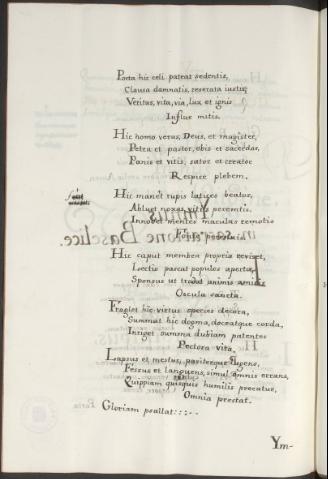 Porta hic celi pateat sedentis,
Clausa damnatis, reserata iustis,
Veritas, vita, via, lux et ignis
Influe mitis.
Hic homo verus, Deus, et magister,
Petra et pastor, obis et sacerdos,
Panis et vitis, sator et creator
Respice plebem.
Hic manet rupis latices beatus,
Abluit noxas, vitiis peremtis,
Innovet mentes maculas remotio
Fonte
Hic caput membra propria reviset,
Lectio pascat populos aperta,
Sponsus ut tradat animis
Oscula sancta.
Flaglet hic virtus species decora,
Summat hic dogma, doceatque corda,
Intret summa dubiam patentes
Pectora vita.
Lapsus et mestus, pariterque lugens,
Fessus et languens, simul omnis errans,
Quippiam quisquis humilis precatur,
Omnia prestat.
Gloriam psallat:::--
Ym-